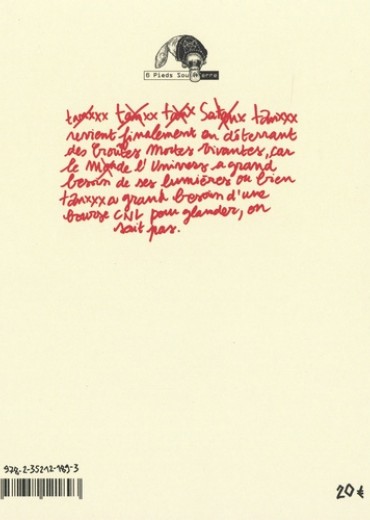 6 Pieds Sous Terre
tanxxx tanxx tanx Satanx tanxxx
revient finalement en déterrant
des croûtes mortes vivantes, car
le Monde l'Univers a grand
besoin de ses lumières ou bien
tanxxx a grand besoin d'une
bourse CNL pour glander, on
sait pas.
978-2-35212-189-3
20 €